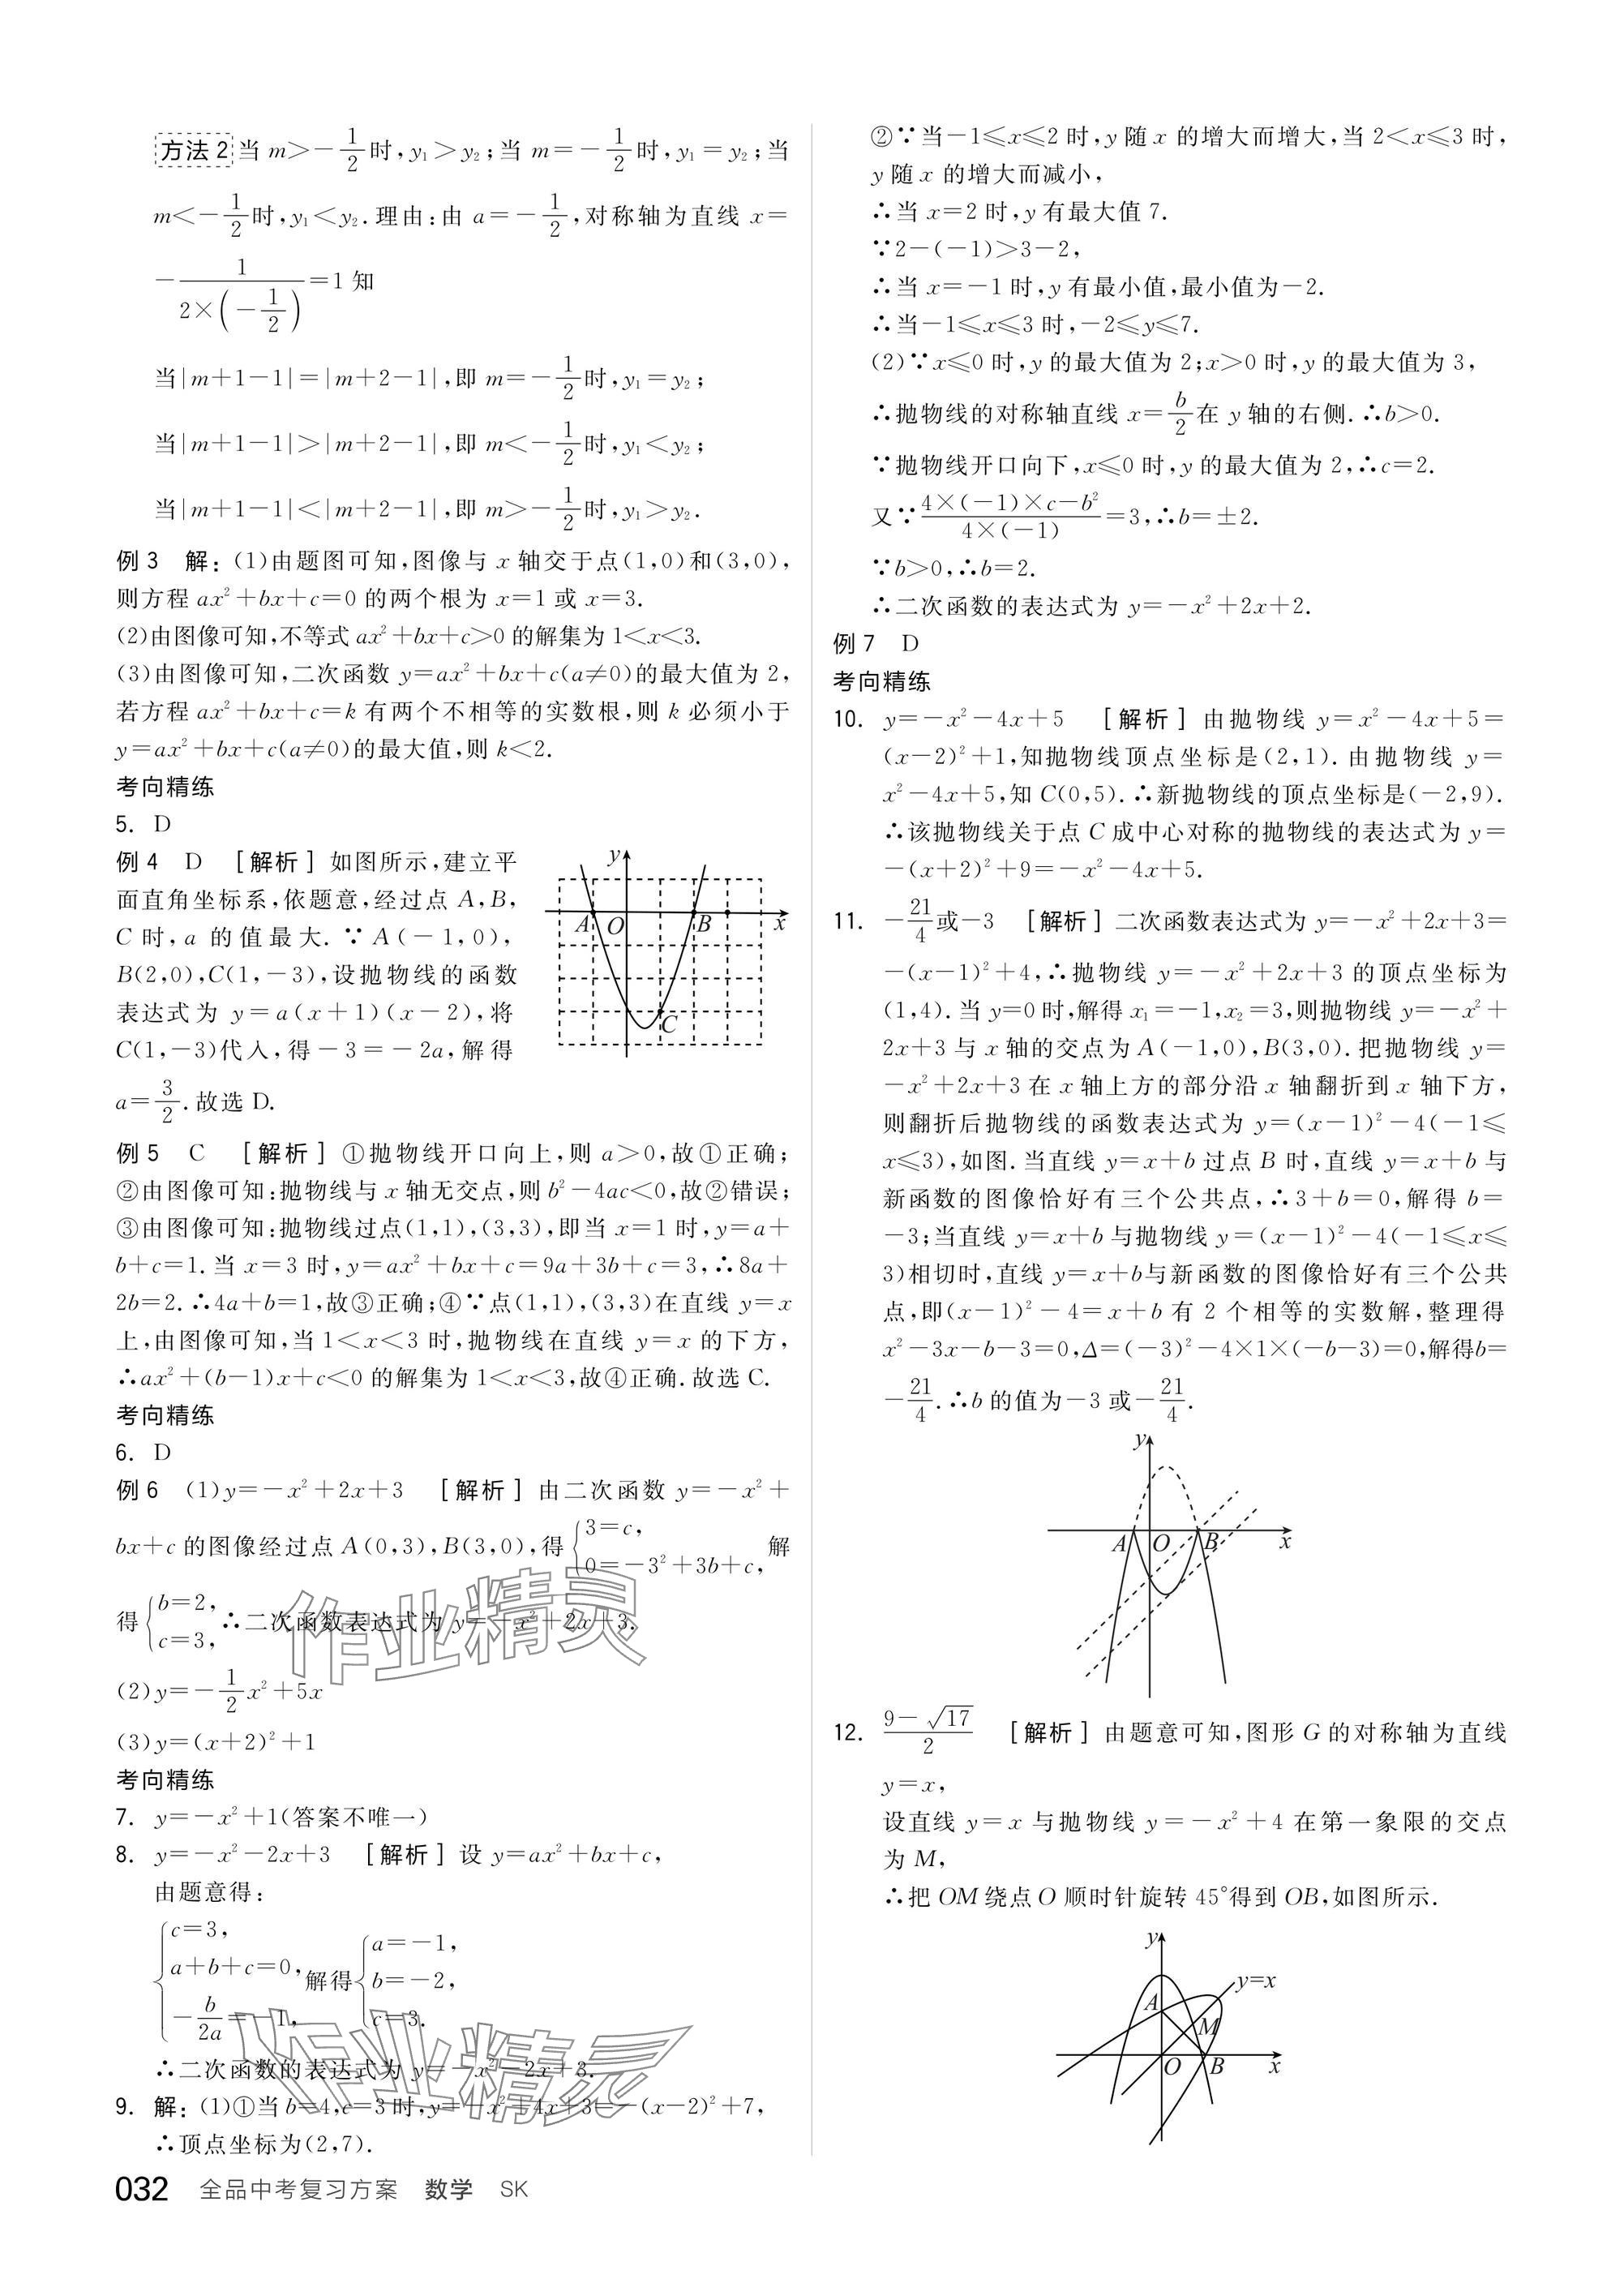 方法2 当 m>-1/2时,y₁>y₂;当 m=-1/2时,y₁=y₂;当
m<-1/2时,y₁<y₂.理由:由 a=-1/2,对称轴为直线 x=
-1/(2×(-1/2))=1 知
当|m+1-1|=|m+2-1|,即 m=-1/2时,y₁=y₂;
当|m+1-1|>|m+2-1|,即 m<-1/2时,y₁<y₂;
当|m+1-1|<|m+2-1|,即 m>-1/2时,y₁>y₂.
例3 解:(1)由题图可知,图像与 x 轴交于点(1,0)和(3,0),
则方程 ax²+bx+c=0 的两个根为 x=1 或 x=3.
(2)由图像可知,不等式 ax²+bx+c>0 的解集为 1<x<3.
(3)由图像可知,二次函数 y=ax²+bx+c(a≠0)的最大值为 2,
若方程 ax²+bx+c=k 有两个不相等的实数根,则 k 必须小于
y=ax²+bx+c(a≠0)的最大值,则 k<2.
考向精练
5. D
例4 D [解析] 如图所示,建立平
面直角坐标系,依题意,经过点 A,B,
C 时,a 的值最大.∵A(-1,0),
B(2,0),C(1,-3),设抛物线的函数
表达式为 y=a(x+1)(x-2),将
C(1,-3)代入,得-3=-2a,解得
a=3/2.故选 D.
y
A O B x
C
例5 C [解析] ①抛物线开口向上,则 a>0,故①正确;
②由图像可知:抛物线与 x 轴无交点,则 b²-4ac<0,故②错误;
③由图像可知:抛物线过点(1,1),(3,3),即当 x=1 时,y=a+
b+c=1.当 x=3 时,y=ax²+bx+c=9a+3b+c=3,∴8a+
2b=2.∴4a+b=1,故③正确;④∵点(1,1),(3,3)在直线 y=x
上,由图像可知,当 1<x<3 时,抛物线在直线 y=x 的下方,
∴ax²+(b-1)x+c<0 的解集为 1<x<3,故④正确.故选 C.
考向精练
6. D
例6 (1)y=-x²+2x+3 [解析] 由二次函数 y=-x²+
bx+c 的图像经过点 A(0,3),B(3,0),得{3=c, 0=-3²+3b+c, 解
得{b=2, c=3, ∴二次函数表达式为 y=-x²+2x+3.
(2)y=-1/2x²+5x
(3)y=(x+2)²+1
考向精练
7. y=-x²+1(答案不唯一)
8. y=-x²-2x+3 [解析] 设 y=ax²+bx+c,
由题意得:
{c=3, a+b+c=0, -b/2a=-1, 解得{a=-1, b=-2, c=3.
∴二次函数的表达式为 y=-x²-2x+3.
9. 解:(1)①当 b=4,c=3 时,y=-x²+4x+3=-(x-2)²+7,
∴顶点坐标为(2,7).
作业精灵
作业精灵
032 全品中考复习方案 数学 SK
②∵当-1≤x≤2 时,y 随 x 的增大而增大,当 2<x≤3 时,
y 随 x 的增大而减小,
∴当 x=2 时,y 有最大值 7.
∵2-(-1)>3-2,
∴当 x=-1 时,y 有最小值,最小值为-2.
∴当-1≤x≤3 时,-2≤y≤7.
(2)∵x≤0 时,y 的最大值为 2;x>0 时,y 的最大值为 3,
∴抛物线的对称轴直线 x=b/2在 y 轴的右侧.∴b>0.
∵抛物线开口向下,x≤0 时,y 的最大值为 2,∴c=2.
又∵(4×(-1)×c-b²)/(4×(-1))=3,∴b=±2.
∵b>0,∴b=2.
∴二次函数的表达式为 y=-x²+2x+2.
例7 D
考向精练
10. y=-x²-4x+5 [解析] 由抛物线 y=x²-4x+5=
(x-2)²+1,知抛物线顶点坐标是(2,1).由抛物线 y=
x²-4x+5,知 C(0,5).∴新抛物线的顶点坐标是(-2,9).
∴该抛物线关于点 C 成中心对称的抛物线的表达式为 y=
-(x+2)²+9=-x²-4x+5.
11. -21/4或-3 [解析] 二次函数表达式为 y=-x²+2x+3=
-(x-1)²+4,∴抛物线 y=-x²+2x+3 的顶点坐标为
(1,4).当 y=0 时,解得 x₁=-1,x₂=3,则抛物线 y=-x²+
2x+3 与 x 轴的交点为 A(-1,0),B(3,0).把抛物线 y=
-x²+2x+3 在 x 轴上方的部分沿 x 轴翻折到 x 轴下方,
则翻折后抛物线的函数表达式为 y=(x-1)²-4(-1≤
x≤3),如图.当直线 y=x+b 过点 B 时,直线 y=x+b 与
新函数的图像恰好有三个公共点,∴3+b=0,解得 b=
-3;当直线 y=x+b 与抛物线 y=(x-1)²-4(-1≤x≤
3)相切时,直线 y=x+b与新函数的图像恰好有三个公共
点,即(x-1)²-4=x+b 有 2 个相等的实数解,整理得
x²-3x-b-3=0,Δ=(-3)²-4×1×(-b-3)=0,解得b=
-21/4.∴b 的值为-3 或-21/4.
y
A O B x
12. (9-√17)/2 [解析] 由题意可知,图形 G 的对称轴为直线
y=x,
设直线 y=x 与抛物线 y=-x²+4 在第一象限的交点
为 M,
∴把 OM 绕点 O 顺时针旋转 45°得到 OB,如图所示.
y
y=x
A
M
O B x